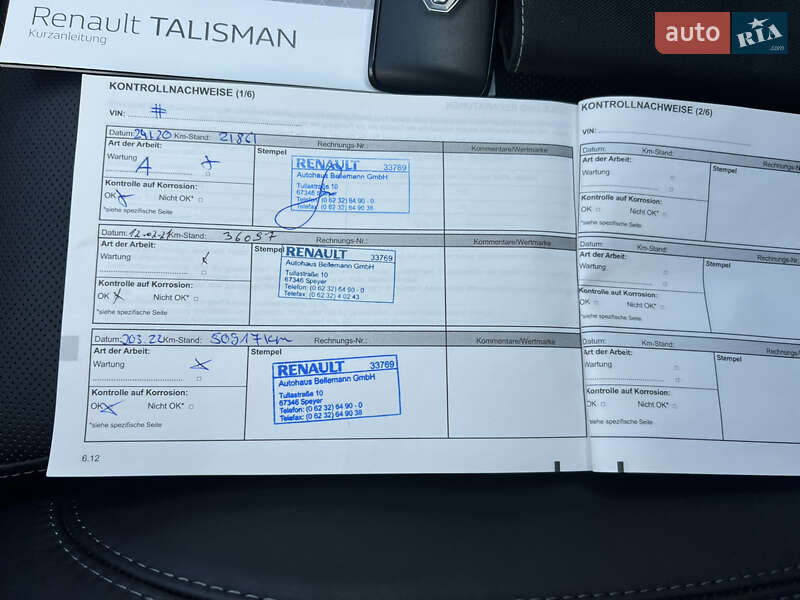 Renault TALISMAN
Kurzanleitung
auto RIA
.com
KONTROLLNACHWEISE (1/6)
VIN: #
Datum: Km-Stand: 21861 Rechnungs-Nr.: Kommentare/Wertmarke
Art der Arbeit: Stempel
Wartung A
Kontrolle auf Korrosion:
OK Nicht OK*
*siehe spezifische Seite
RENAULT 33769
Autohaus Bellemann GmbH
Tullastraße 10
67346 Speyer
Telefon: (0 62 32) 64 90 - 0
Telefax: (0 62 32) 64 90 38
Datum: Km-Stand: 36097 Rechnungs-Nr.: Kommentare/Wertmarke
Art der Arbeit: Stempel
Wartung
Kontrolle auf Korrosion:
OK Nicht OK*
*siehe spezifische Seite
RENAULT 33769
Autohaus Bellemann GmbH
Tullastraße 10
67346 Speyer
Telefon: (0 62 32) 64 90 - 0
Telefax: (0 62 32) 4 02 43
Datum: Km-Stand: 50917km Rechnungs-Nr.: Kommentare/Wertmarke
Art der Arbeit: Stempel
Wartung
Kontrolle auf Korrosion:
OK Nicht OK*
*siehe spezifische Seite
RENAULT 33769
Autohaus Bellemann GmbH
Tullastraße 10
67346 Speyer
Telefon: (0 62 32) 64 90 - 0
Telefax: (0 62 32) 64 90 38
6.12
KONTROLLNACHWEISE (2/6)
VIN:
Datum: Km-Stand: Rechnungs-Nr
Art der Arbeit: Stempel
Wartung
Kontrolle auf Korrosion:
OK Nicht OK*
*siehe spezifische Seite
Datum: Km-Stand: Rechnungs-N
Art der Arbeit: Stempel
Wartung
Kontrolle auf Korrosion:
OK Nicht OK*
*siehe spezifische Seite
Datum: Km-Stand: Rechnungs
Art der Arbeit: Stempel
Wartung
Kontrolle auf Korrosion:
OK Nicht OK*
*siehe spezifische Seite